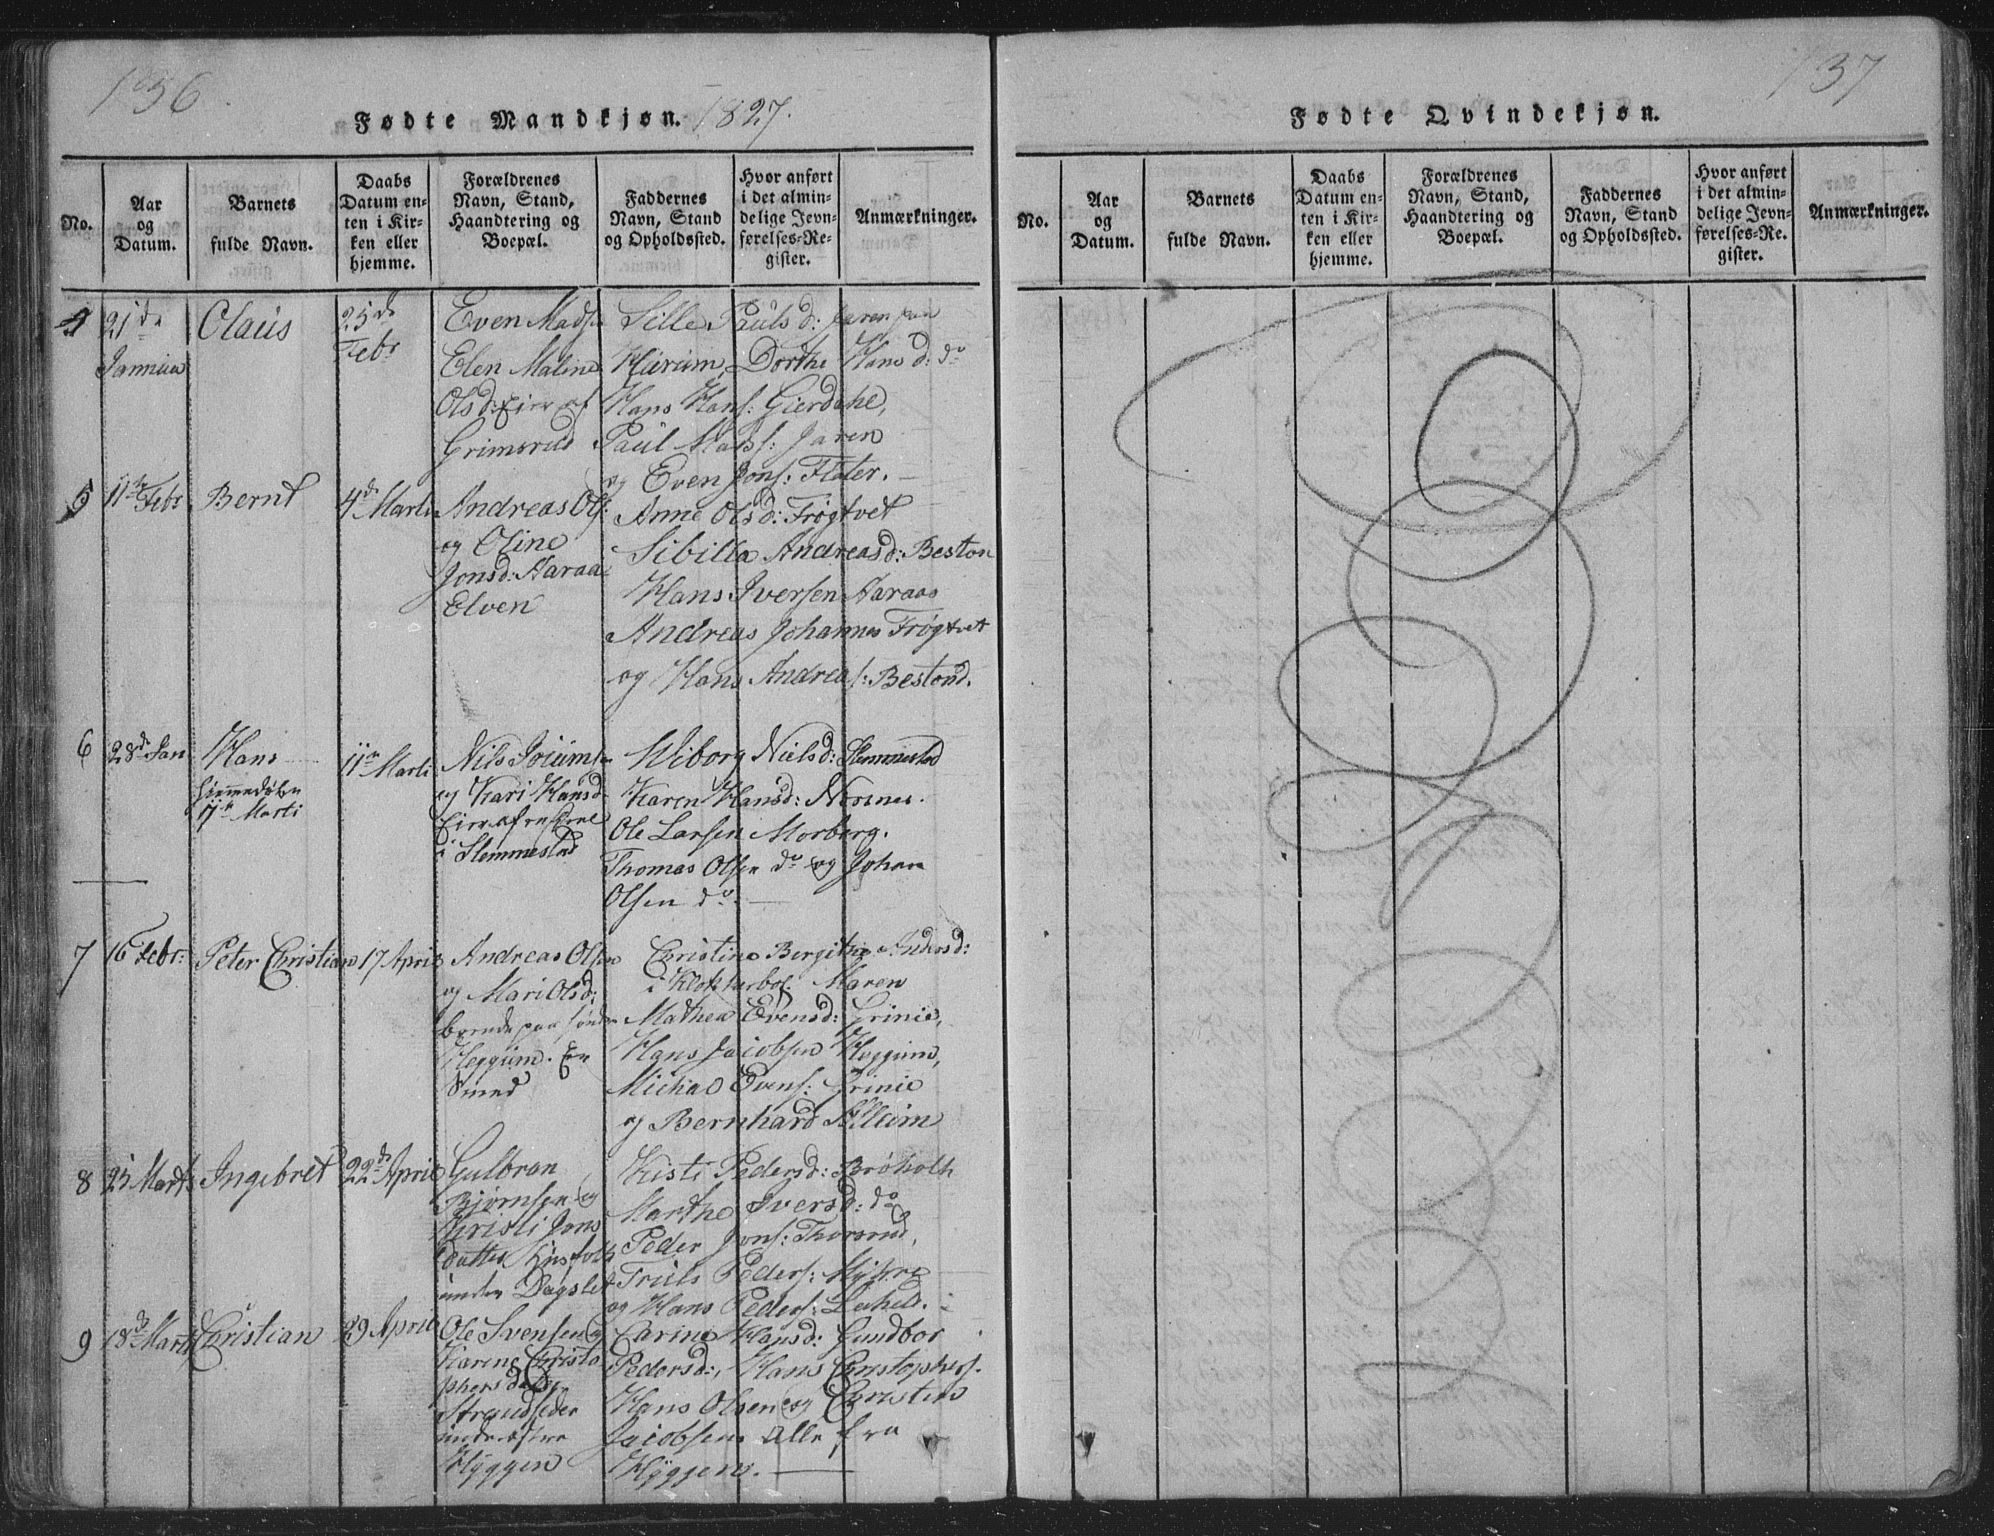 136
Fødte Mandkjøn. 1827.
No.
Aar og Datum.
Barnets fulde Navn.
Daabs Datum enten i Kirken eller hjemme.
Forældrenes Navn, Stand, Haandtering og Boepæl.
Faddernes Navn, Stand og Opholdssted.
Hvor anført i det almindelige Jevnførelses-Register.
Anmærkninger.
4
21de
Januar
Olaus
25de
Febr
Even Mads
Elen Maline
Olsd: Eier af
Grimsrud
Sille Paulsd: Jaren
Hurum, Dorthe Hansd: do
Hans Hans: Gierdahl,
Paul Mads: Jaren
og Even Jons: Flater.
5
11te Febr
Bernt
4de Marti
Andreas Ols:
og Oline
Jonsd: Aaraa
Elven
Anne Olsd: Frøgtvet
Sibilla Andreasd: Beston
Hans Iversen Aaraas
Andreas Johannes Frøgtvet
og Hans Andreas: Bestond.
6
28de Jan
Hans
hjemmedøbt
11te Marti
Nils
og Kari Hansd
i Slemmestad
Wiborg Nielsd: Slemmestad
Karen Hansd: Norsnes.
Ole Larsen Morberg.
Thomas Olsen do og Johan
Olsen do.
7
16 Febr:
Peter Christian
17 April
Andreas Olsen
og Mari Olsd:
boende paa
Heggum. En
Smed
Christine Bergithe Andersd:
i Maren
Mathea Evensd: Grinie,
Hans Jacobsen Heggum,
Michal Evens: Grinie
og Bernhard Allum
8
25 Marts
Ingebret
22de April
Gulbran
Bjørnsen og
Kristi Jons
datter
under Dagslet
Kisti Pedersd: Brøholt
Marthe Iversd: do
Peder Jons: Thorsrud,
Truls Peders: Myhre
og Hans Peders:
9
18de Marts
Christian
29 April
Ole Svensen og
Karine Christo
phersdatter
Strandsidder
under østre
Hyggen
Carine Hansd: Gundbor
Pedersd:, Hans Christophers.
Hans Olsen og Christen
Jacobsen alle fra
Hyggen.
137
Fødte Qvindekjøn.
No.
Aar og Datum.
Barnets fulde Navn.
Daabs Datum enten i Kirken eller hjemme.
Forældrenes Navn, Stand, Haandtering og Boepæl.
Faddernes Navn, Stand og Opholdssted.
Hvor anført i det almindelige Jevnførelses-Register.
Anmærkninger.